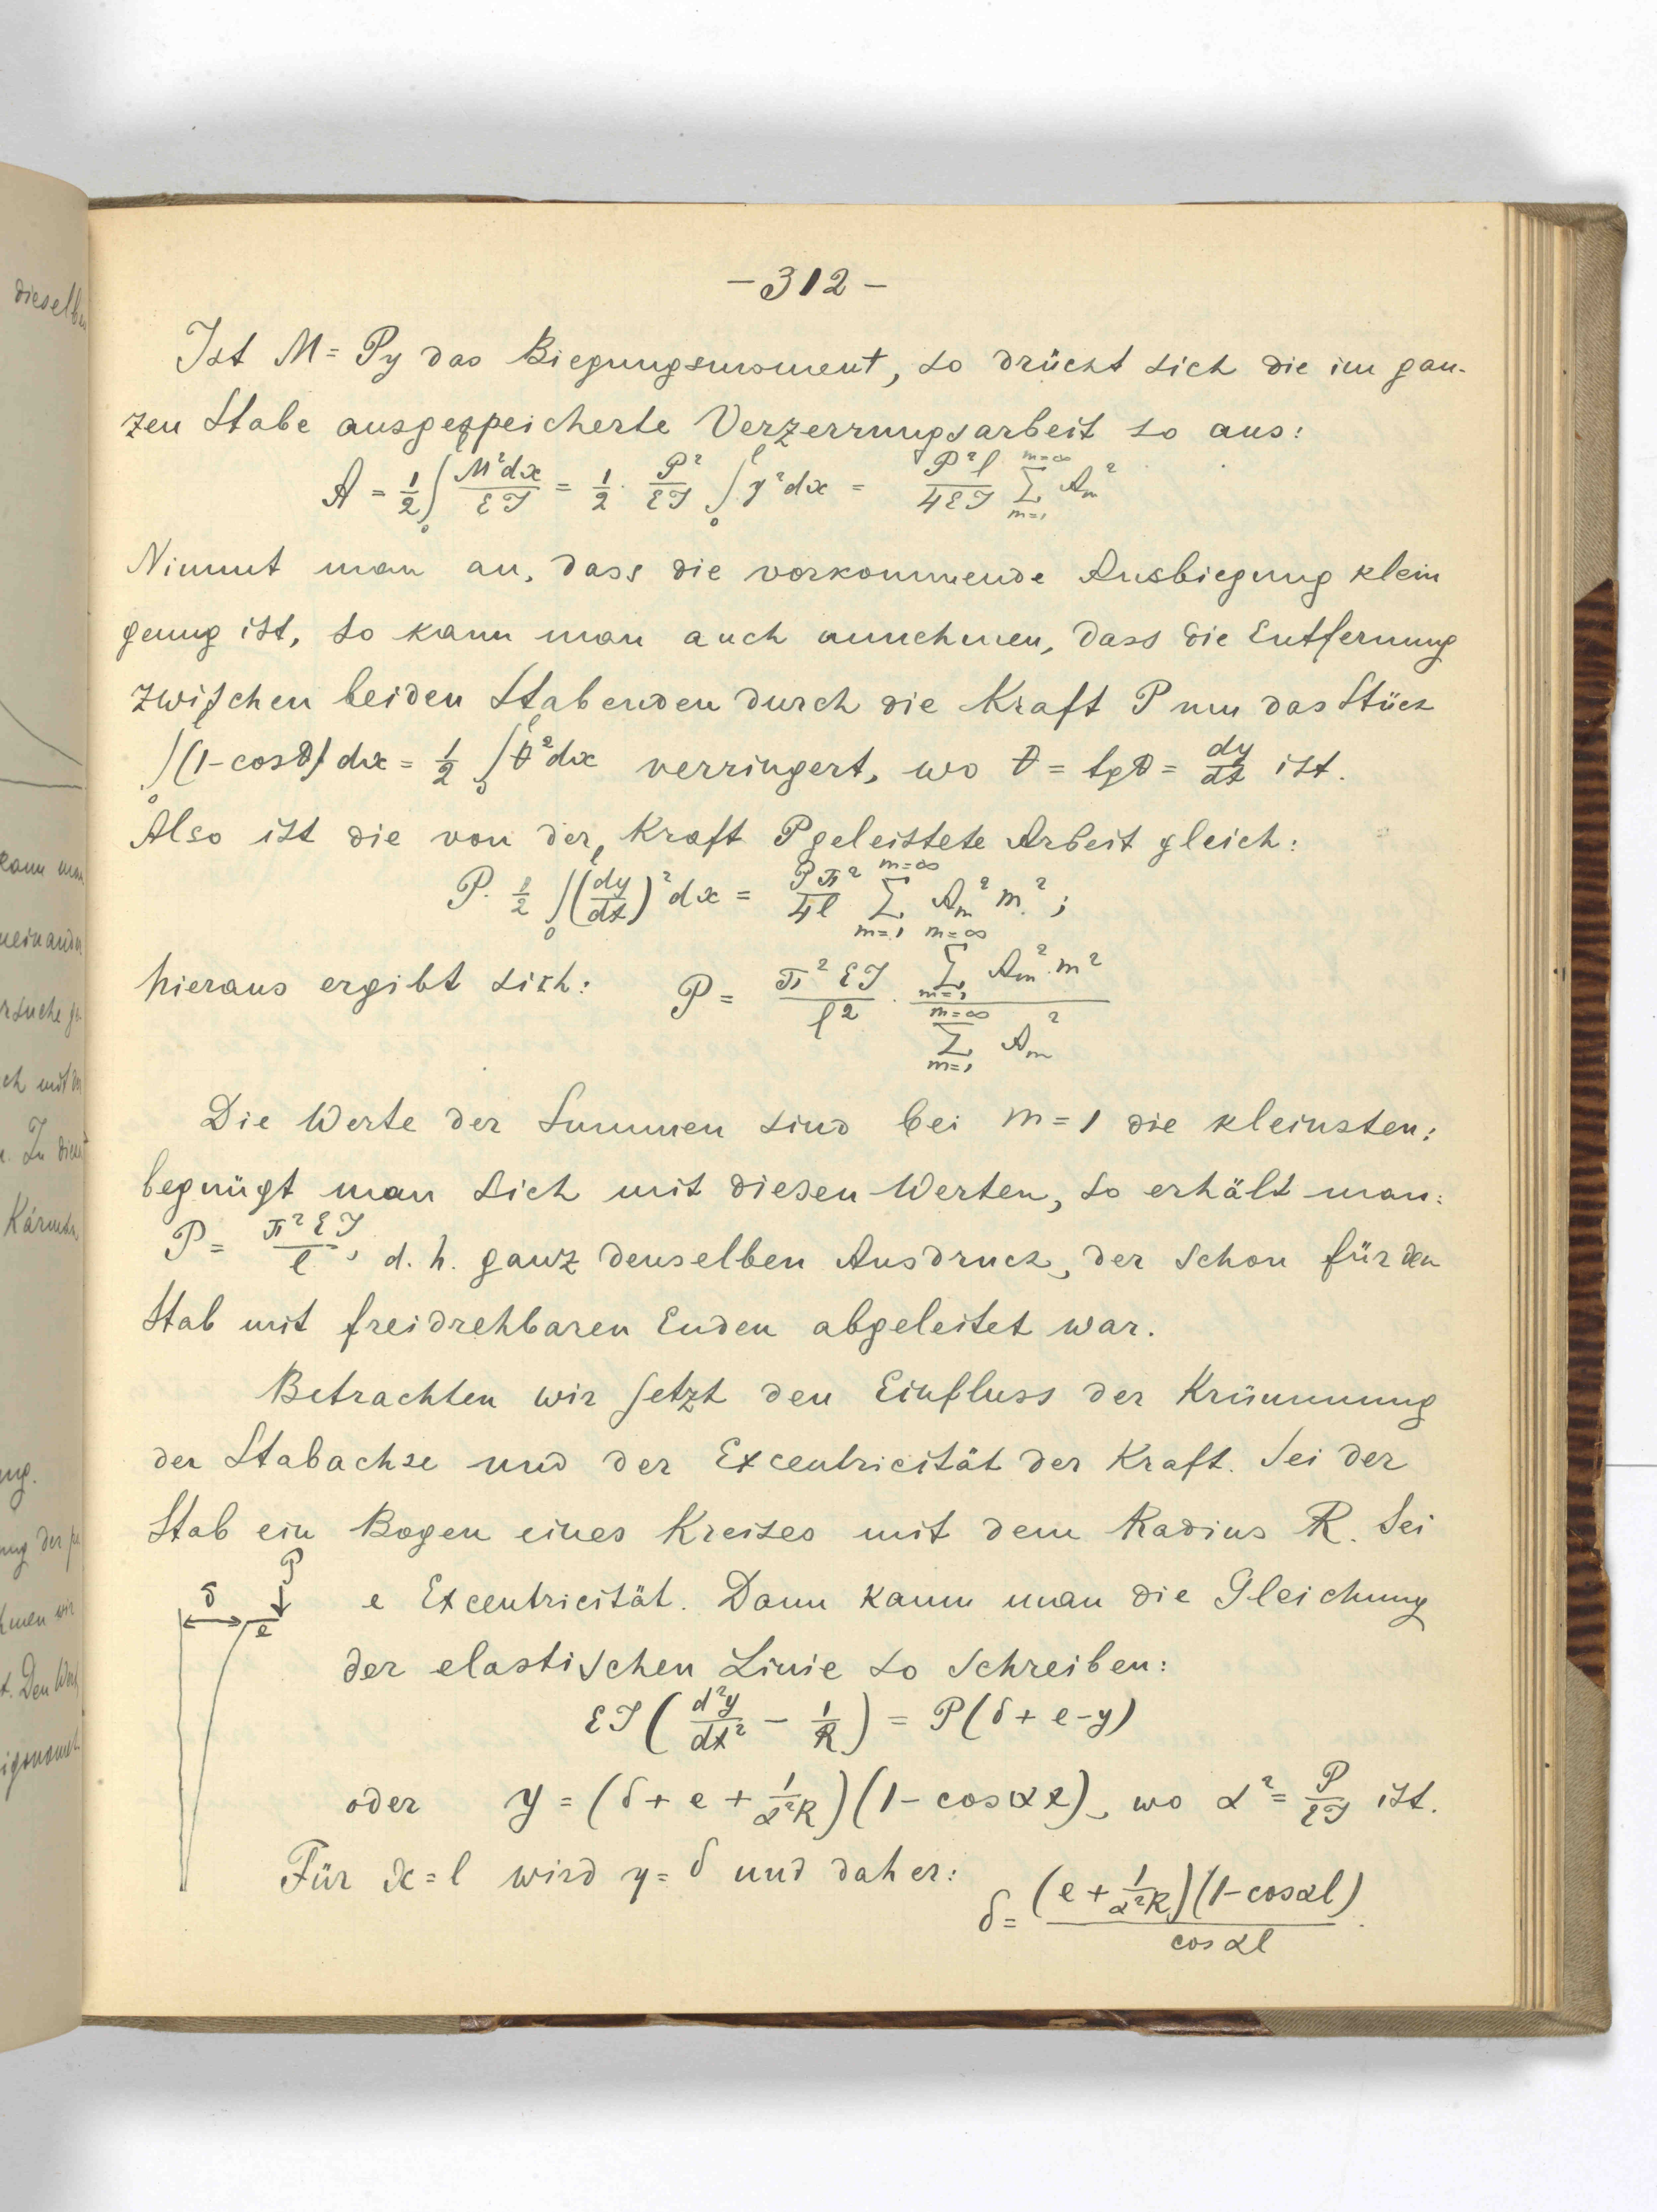 dieselben
kann man
Kármán
ung.
ung der
hmen wir
t. Den
igonomet.
- 312 -
Ist M = Py das Biegungsmoment, so drückt sich die im gan-
zen Stabe ausgespeicherte Verzerrungsarbeit so aus:
A = 1/2 ∫₀ˡ M²dx/εJ = 1/2 · P²/εJ ∫₀ˡ y²dx = P²l/4εJ Σ_{m=1}^{m=∞} Aₘ²
Nimmt man an, dass die vorkommende Ausbiegung klein
genug ist, so kann man auch annehmen, dass die Entfernung
zwischen beiden Stabenden durch die Kraft P um das Stück
∫₀ˡ (1-cosϑ) dx = 1/2 ∫₀ˡ ϑ²dx verringert, wo ϑ = tgϑ = dy/dx ist.
Also ist die von der Kraft P geleistete Arbeit gleich:
P · 1/2 ∫₀ˡ (dy/dx)² dx = Pπ²/4l Σ_{m=1}^{m=∞} Aₘ² m²;
hieraus ergibt sich: P = π²εJ/l² · Σ_{m=1}^{m=∞} Aₘ²·m² / Σ_{m=1}^{m=∞} Aₘ²
Die Werte der Summen sind bei m = 1 die kleinsten;
begnügt man sich mit diesen Werten, so erhält man:
P = π²εJ/l, d. h. ganz denselben Ausdruck, der schon für den
Stab mit freidrehbaren Enden abgeleitet war.
Betrachten wir jetzt den Einfluss der Krümmung
der Stabachse und der Excentricität der Kraft. Sei der
Stab ein Bogen eines Kreises mit dem Radius R. Sei
δ
P
e
e Excentricität. Dann kann man die Gleichung
der elastischen Linie so schreiben:
εJ (d²y/dx² - 1/R) = P(δ + e - y)
oder y = (δ + e + 1/α²R)(1 - cosαx), wo α² = P/εJ ist.
Für x = l wird y = δ und daher: δ = (e + 1/α²R)(1 - cosαl) / cosαl.